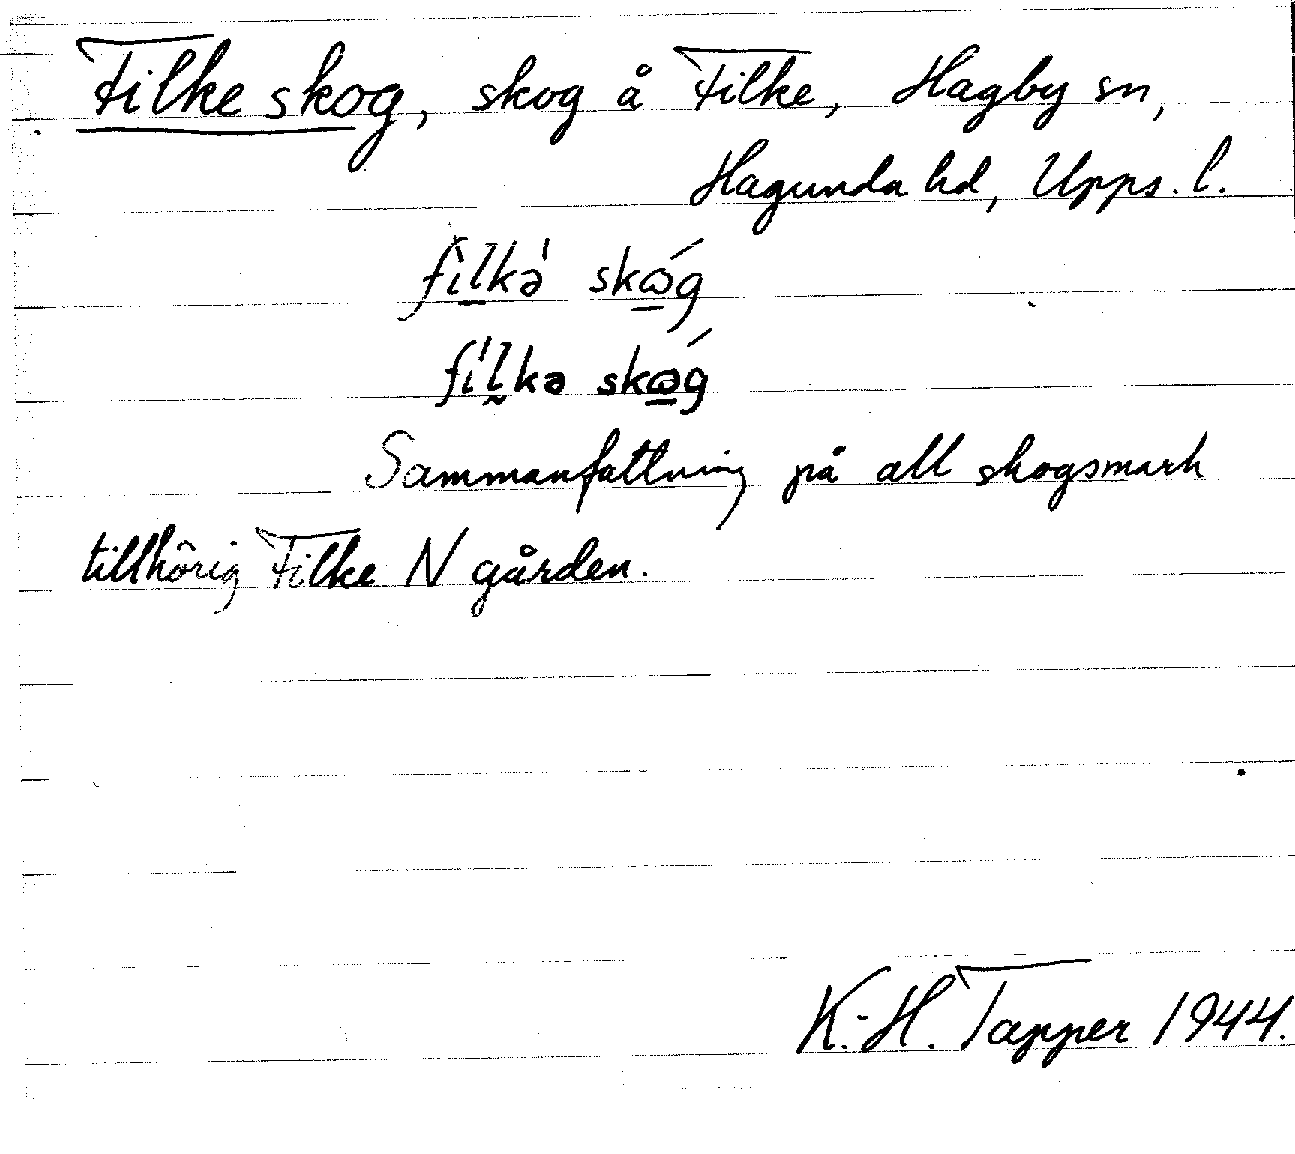 Filke skog, skog å Filke, Hagby sn,
Hagunda hd, Upps. l.
fìlkə̍ skɷ́g
fí̍lkə skɷ́g
Sammanfattning på all skogsmark
tillhörig Filke N gården.
K.-H. Tapper 1944.